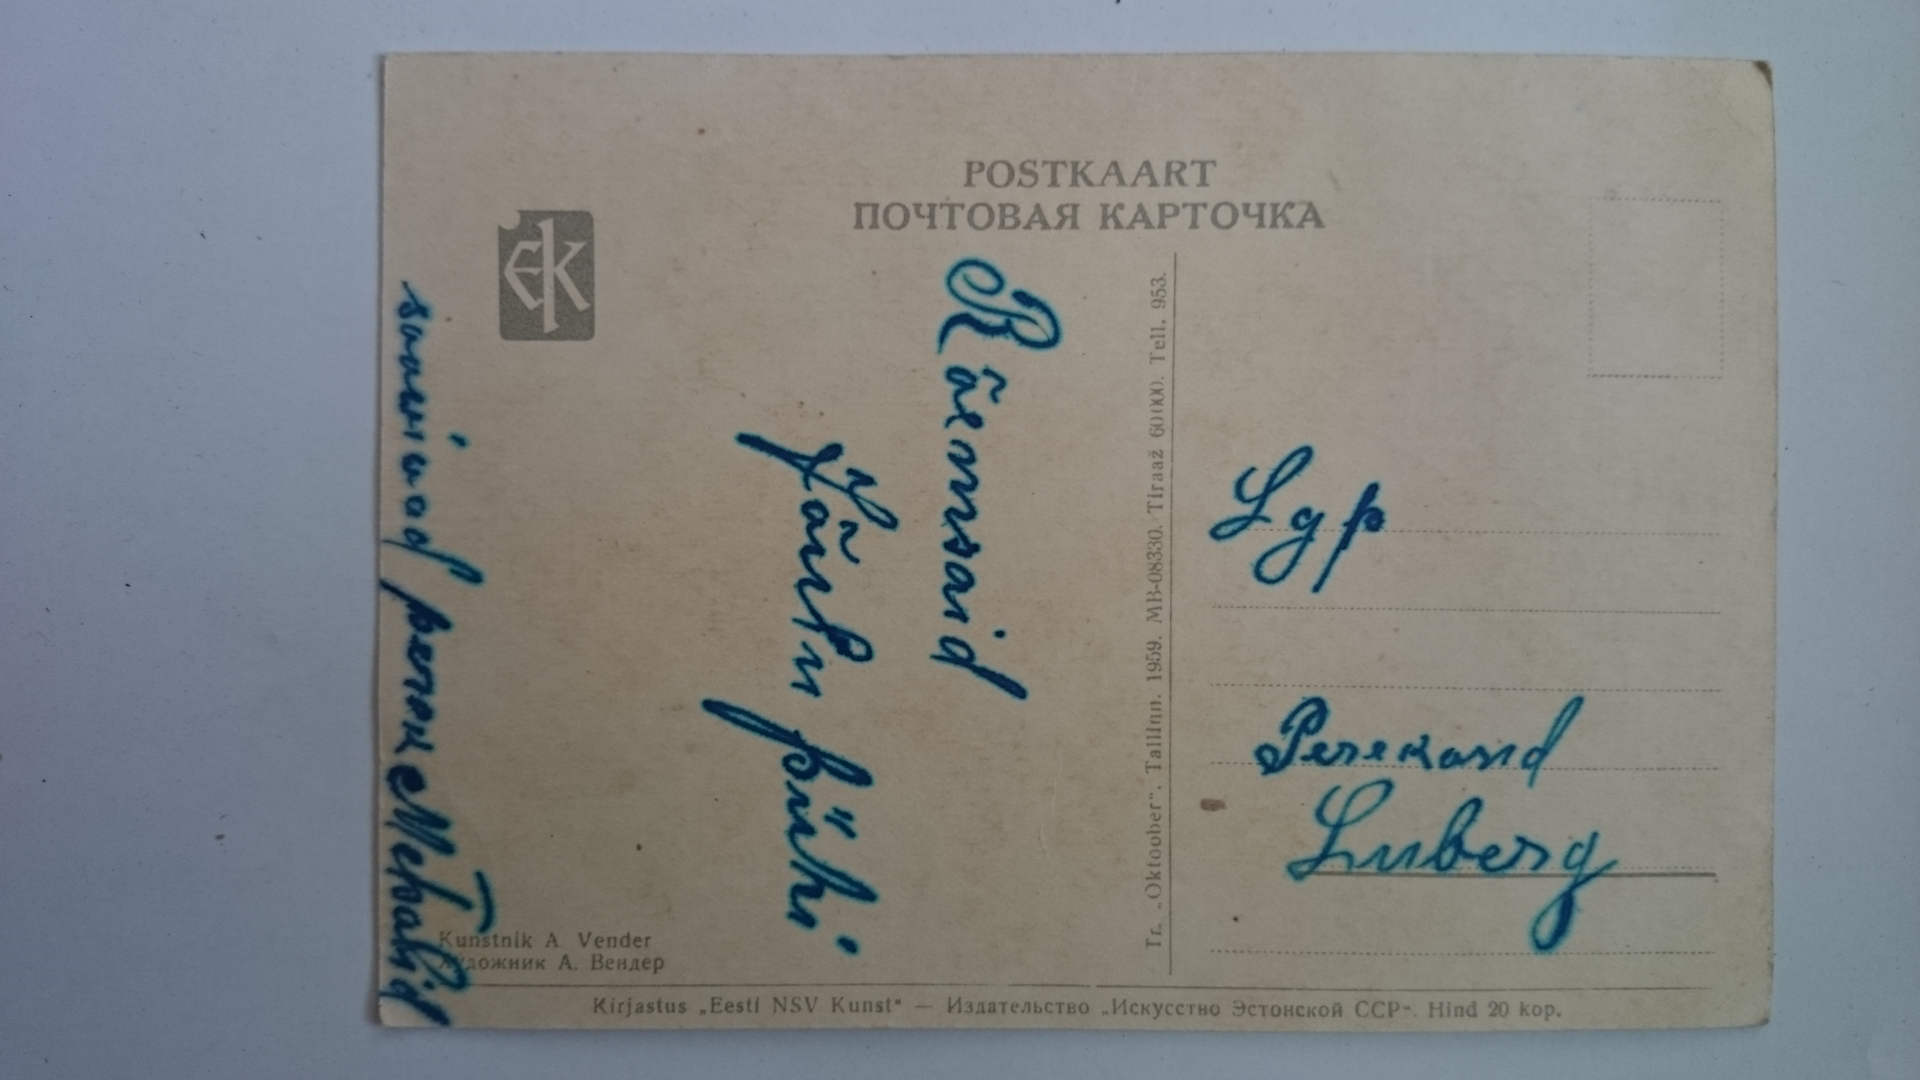 POSTKAART
ПОЧТОВАЯ КАРТОЧКА
EK
Rõemsaid
Jõulu pühi
soovivad peren Metsalid
Tr. „Oktoober“. Tallinn. 1959. MB-08330. Tiraaž 60000. Tell. 953.
Lgp
Perekond
Luberg
Kunstnik A. Vender
Художник А. Вендер
Kirjastus „Eesti NSV Kunst“ — Издательство „Искусство Эстонской ССР“. Hind 20 kop.